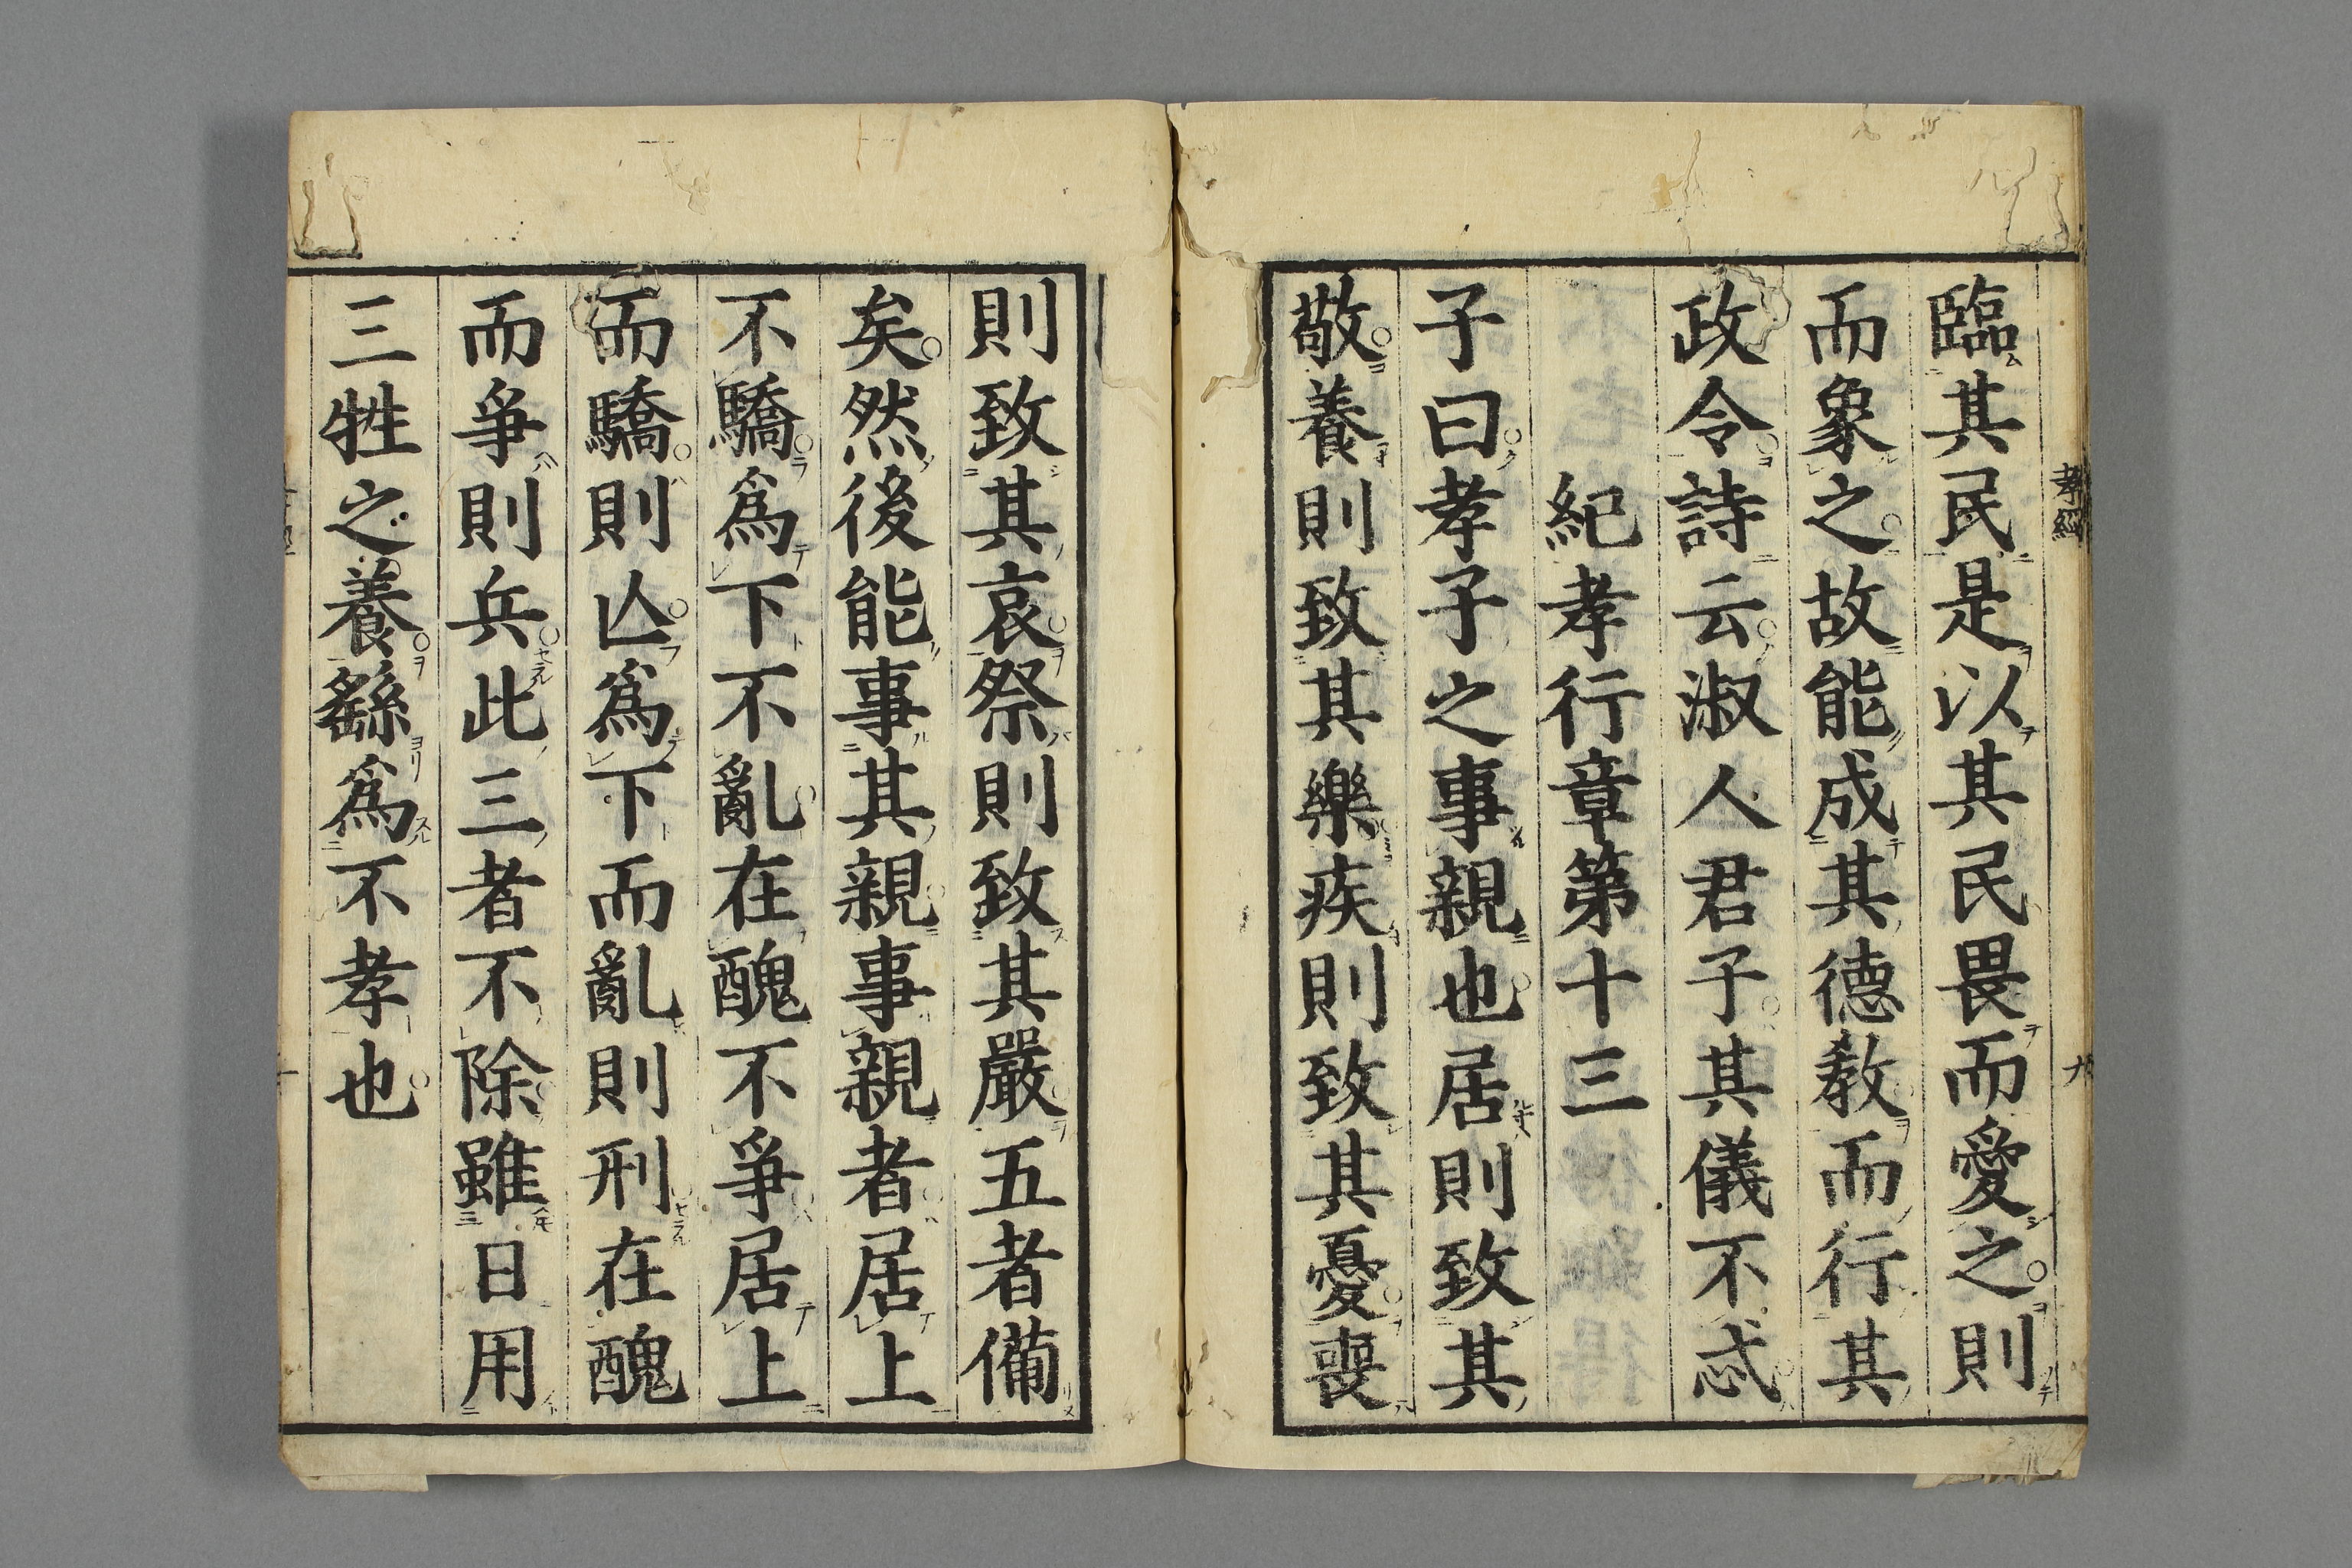 孝經
臨其民是以其民畏而愛之則
而象之故能成其德敎而行其
政令詩云淑人君子其儀不忒
紀孝行章第十三
子曰孝子之事親也居則致其
敬養則致其樂疾則致其憂喪
則致其哀祭則致其嚴五者備
矣然後能事其親事親者居上
不驕爲下不亂在醜不爭居上
而驕則亾爲下而亂則刑在醜
而爭則兵此三者不除雖日用
三牲之養繇爲不孝也